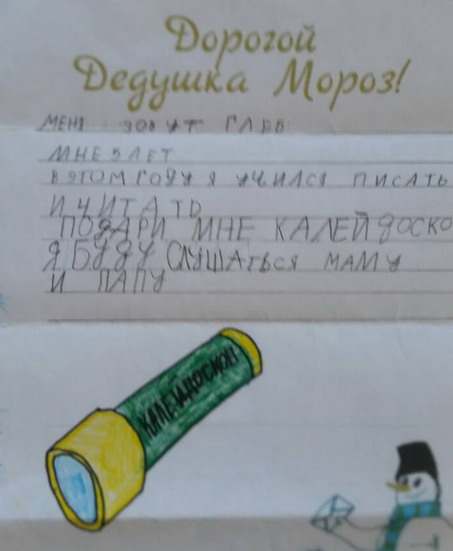 Дорогой
Дедушка Мороз!
МЕНЯ ЗОВУТ ГЛЕБ
МНЕ 5 ЛЕТ
В ЭТОМ ГОДУ Я УЧИЛСЯ ПИСАТЬ
И ЧИТАТЬ
ПОДАРИ МНЕ КАЛЕЙДОСКО
Я БУДУ СЛУШАТЬСЯ МАМУ
И ПАПУ
КАЛЕЙДОСКОП